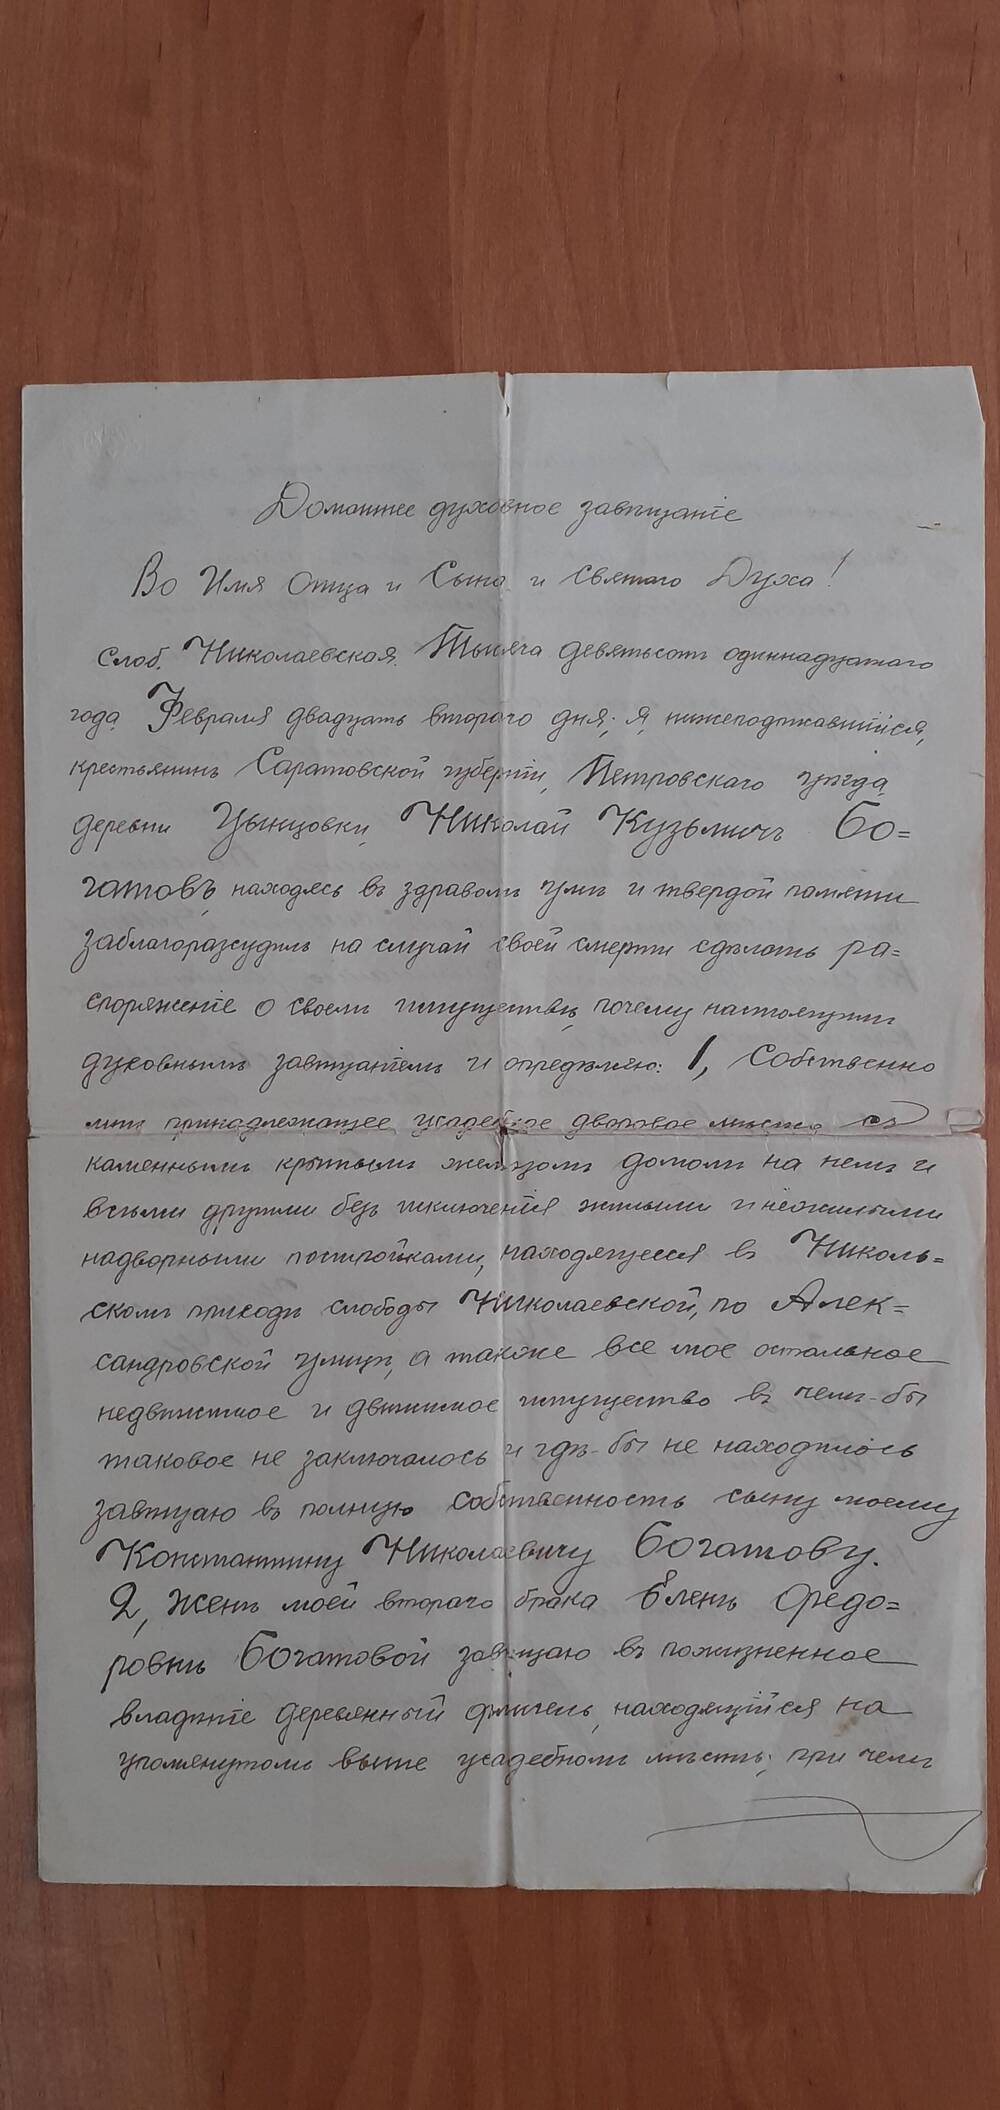 Домашнее духовное завѣщанiе
Во Имя Отца и Сына и Святаго Духа!
Слоб. Николаевская. Тысяча девятьсотъ одиннадцатаго
года Февраля двадцать второго дня, я, нижеподписавшiйся,
крестьянинъ Саратовской губернiи, Петровскаго уѣзда
деревни Цынцовки, Николай Кузьмичъ Бо=
гатовъ, находясь въ здравомъ умѣ и твердой памяти
заблагоразсудилъ на случай своей смерти сдѣлать ра=
споряженiе о своемъ имуществѣ, почему настоящимъ
духовнымъ завѣщанiемъ и опредѣляю: 1, Собственно
мнѣ принадлежащее усадебное дворовое мѣсто съ
каменнымъ крытымъ желѣзомъ домомъ на немъ и
всѣми другими безъ исключенiя жилыми и нежилыми
надворными постройками, находящееся въ Николь=
скомъ приходѣ слободы Николаевской, по Алек=
сандровской улицѣ, а также все мое остальное
недвижимое и движимое имущество въ чемъ-бы
таковое не заключалось и гдѣ-бы не находилось
завѣщаю въ полную собственность сыну моему
Константину Николаевичу Богатову.
2, Женѣ моей второго брака Еленѣ Федо=
ровнѣ Богатовой завѣщаю въ пожизненное
владѣнiе деревянный флигель, находящiйся на
упомянутомъ выше усадебномъ мѣстѣ; при чемъ